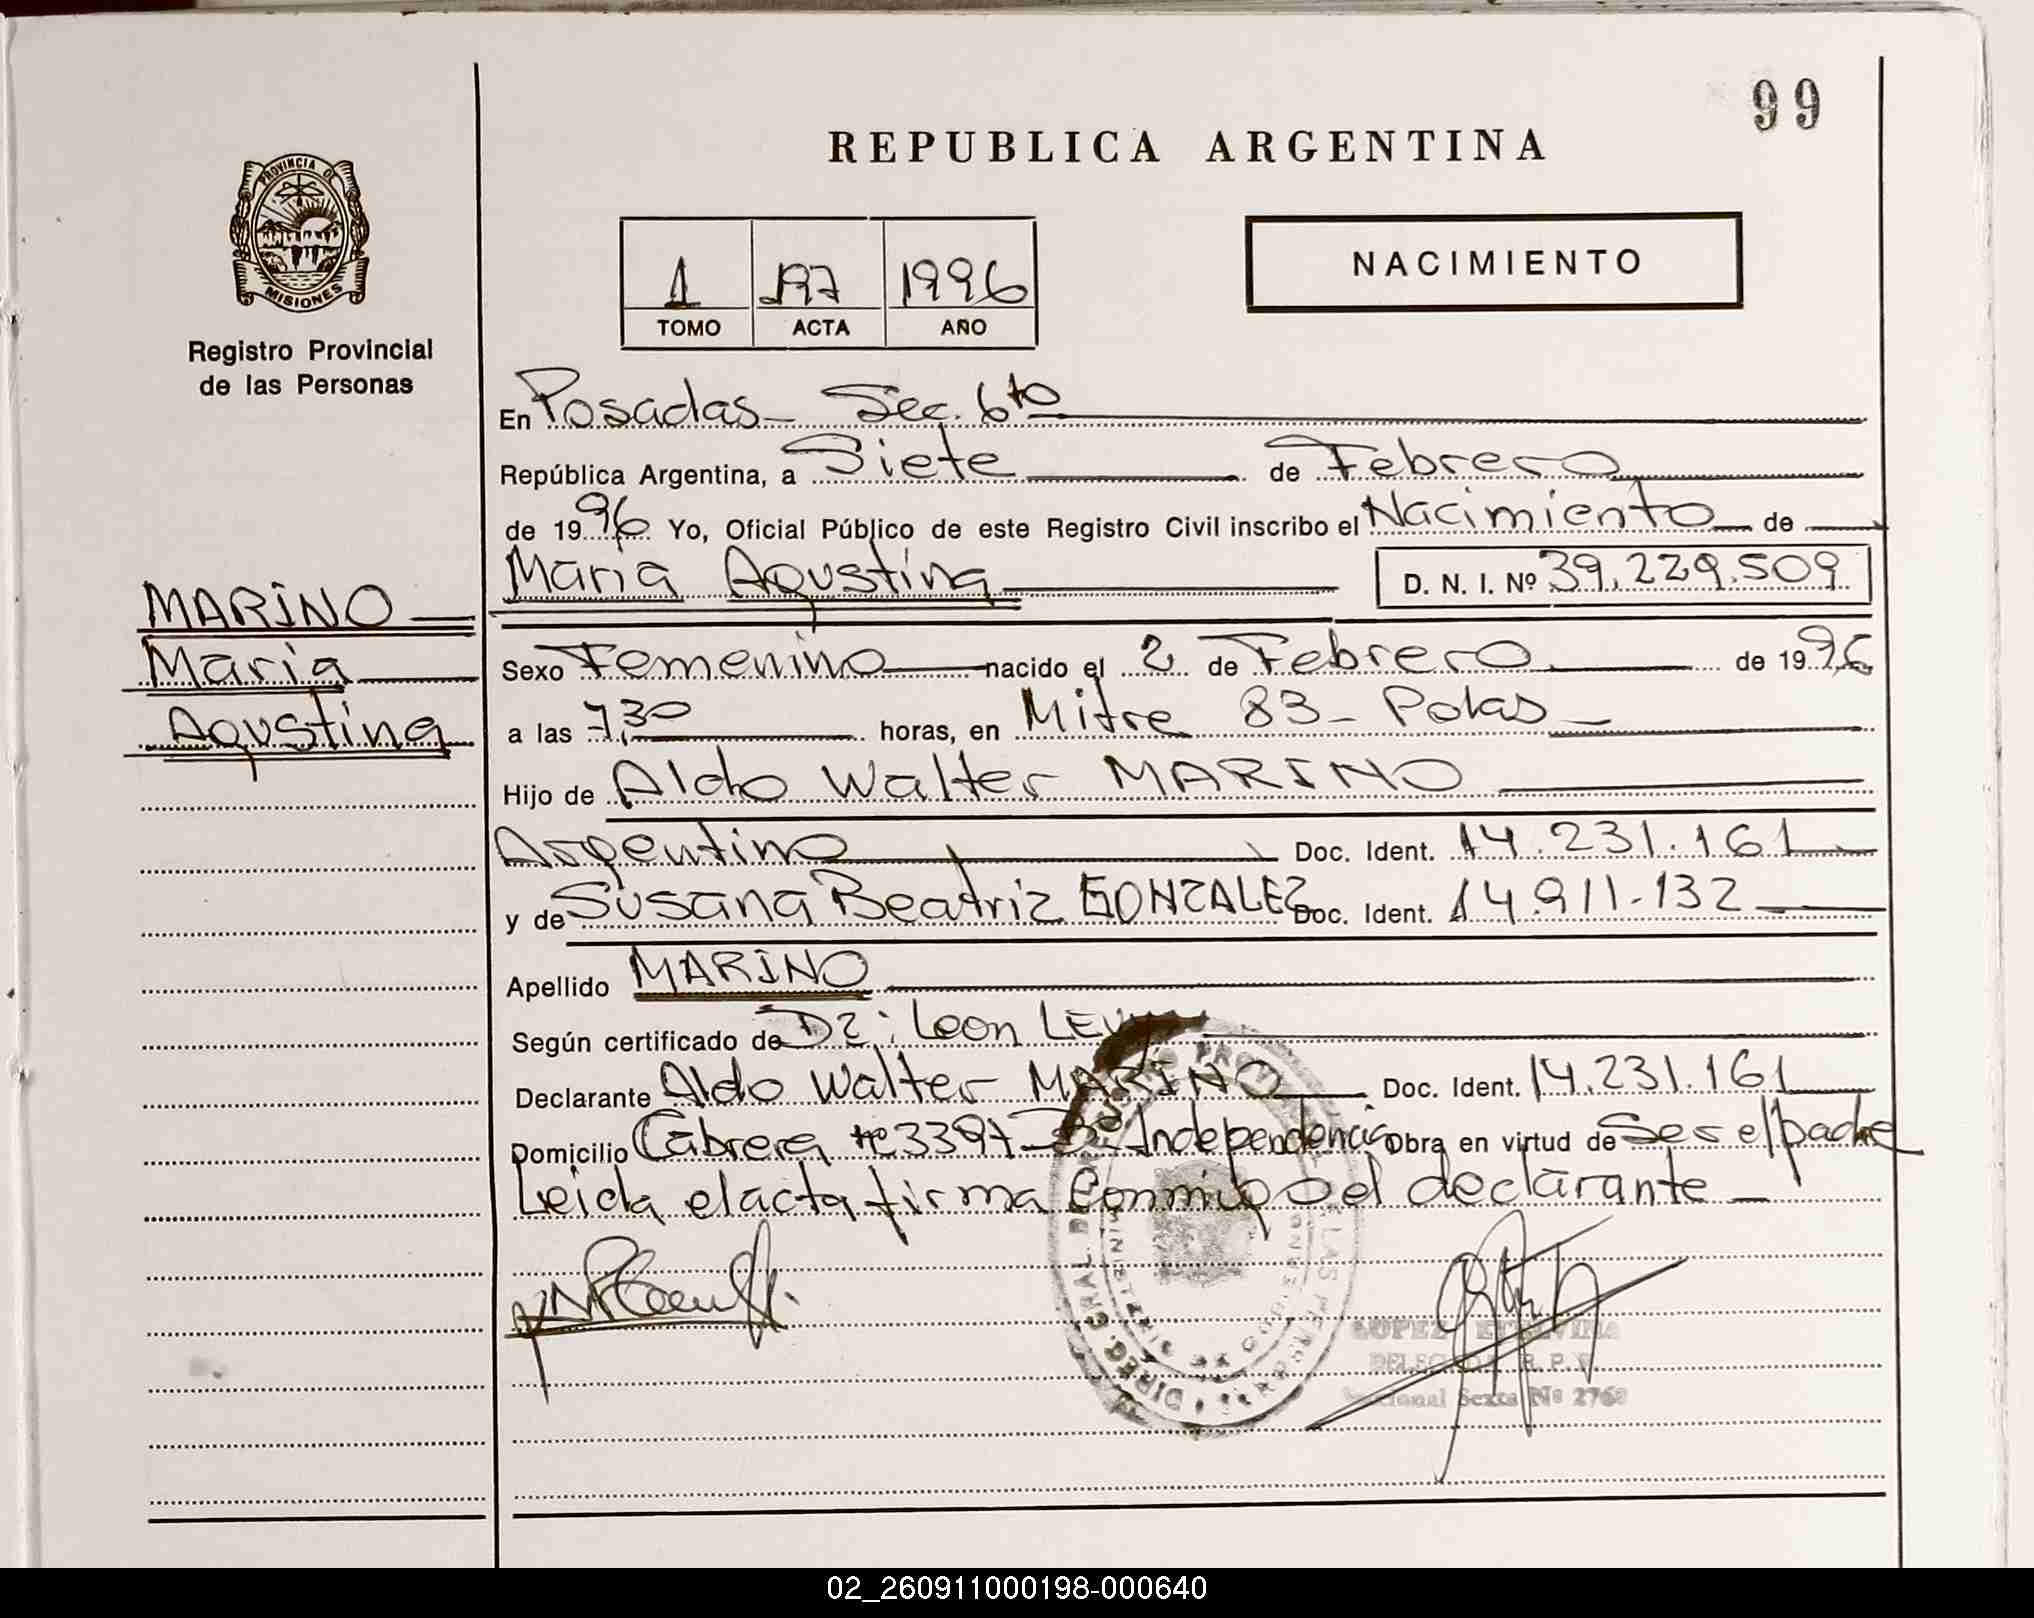 99
REPUBLICA ARGENTINA
PROVINCIA DE
MISIONES
Registro Provincial
de las Personas
1 197 1996
TOMO ACTA AÑO
NACIMIENTO
En Posadas - Sec. 6to
República Argentina, a Siete de Febrero
de 1996 Yo, Oficial Público de este Registro Civil inscribo el Nacimiento de
Maria Agustina D. N. I. Nº 39.229.509
MARINO
Maria
Agustina
Sexo Femenino nacido el 2 de Febrero de 1996
a las 7,30 horas, en Mitre 83 - Pdas -
Hijo de Aldo Walter MARINO
Argentino Doc. Ident. 14.231.161
y de Susana Beatriz GONZALEZ Doc. Ident. 14.911.132
Apellido MARINO
Según certificado de Dr: Leon
Declarante Aldo Walter MARINO Doc. Ident. 14.231.161
Domicilio Cabrera nº 3397 - Bº Independencia Obra en virtud de Ser el padre
Leida el acta firma conmigo el declarante -
LOPEZ
DELEGADA R. P. P.
Seccional Sexta Nº 2768
02_260911000198-000640